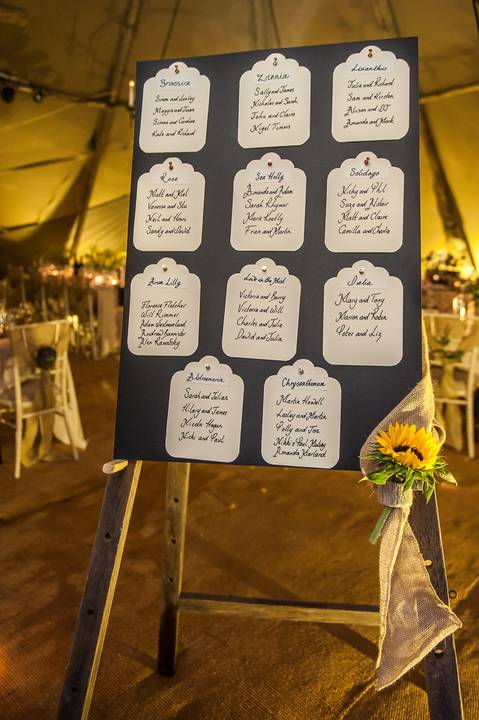 Brassica
Simon and Lesley
Maggie and Juan
Simon and Caroline
Kate and Richard
Zinnia
Sally and James
Nicholas and Sarah
John and Claire
Nigel Timms
Lisianthus
Julia and Richard
Sam and Kirsten
Alison and DJ
Amanda and Mark
Rose
Matt and Mel
Vanessa and Stu
Neil and Henri
Sandy and David
Sea Holly
Amanda and Adam
Sarah Rhymer
Marie Kevlly
Fran and Martin
Solidago
Nicky and Phil
Suze and Alistair
Matt and Claire
Camilla and Charlie
Arum Lilly
Florence Fletcher
Will Rimmer
Adam Westmorland
Andrew Bannister
Alex Ramatsky
Love in the Mist
Victoria and Barry
Victoria and Will
Charles and Julie
David and Julia
Dalia
Mary and Tony
Marion and Robin
Peter and Liz
Alstromeria
Sarah and Julian
Hilary and James
Nicola Hogan
Nicki and Paul
Chrysanthemum
Martin Howell
Lesley and Martin
Polly and Joe
Nikki and Paul
Amanda